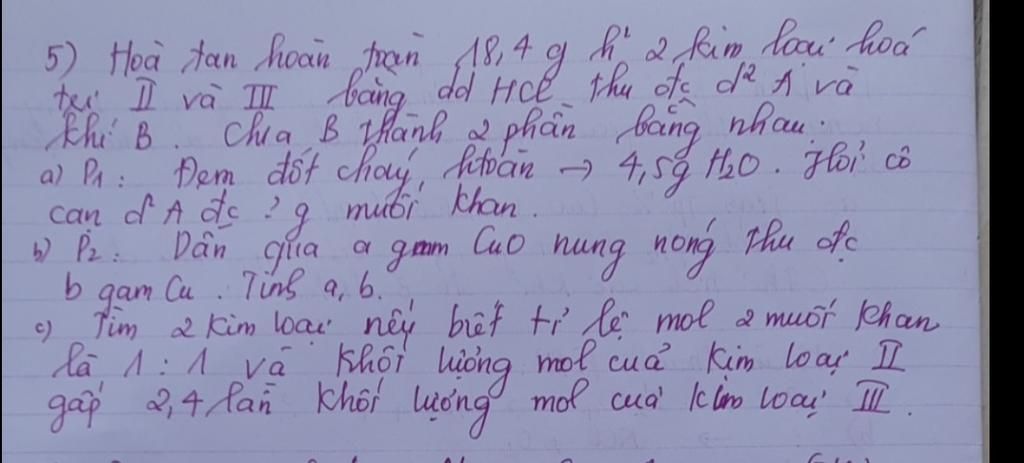 5) Hoà tan hoàn toàn 18,4 g h² 2 kim loại hoá
trị II và III bằng dd HCl thu đc d² A và
khí B. Chia B thành 2 phần bằng nhau.
a) P1: Đem đốt cháy htoàn → 4,5g H2O. Hỏi cô
cạn d² A đc ? g muối khan.
b) P2: Dẫn qua a gam CuO nung nóng thu đc
b gam Cu. Tính a, b.
c) Tìm 2 kim loại nếu biết tỉ lệ mol 2 muối khan
là 1 : 1 và khối lượng mol của kim loại II
gấp 2,4 lần khối lượng mol của kim loại III.